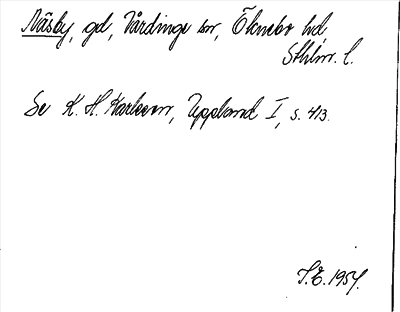 Näsby, gd, Vårdinge sn, Öknebo hd,
Sthlm. l.
Se K. H. Karlsson, Uppland I, s. 413.
S.E. 1954.